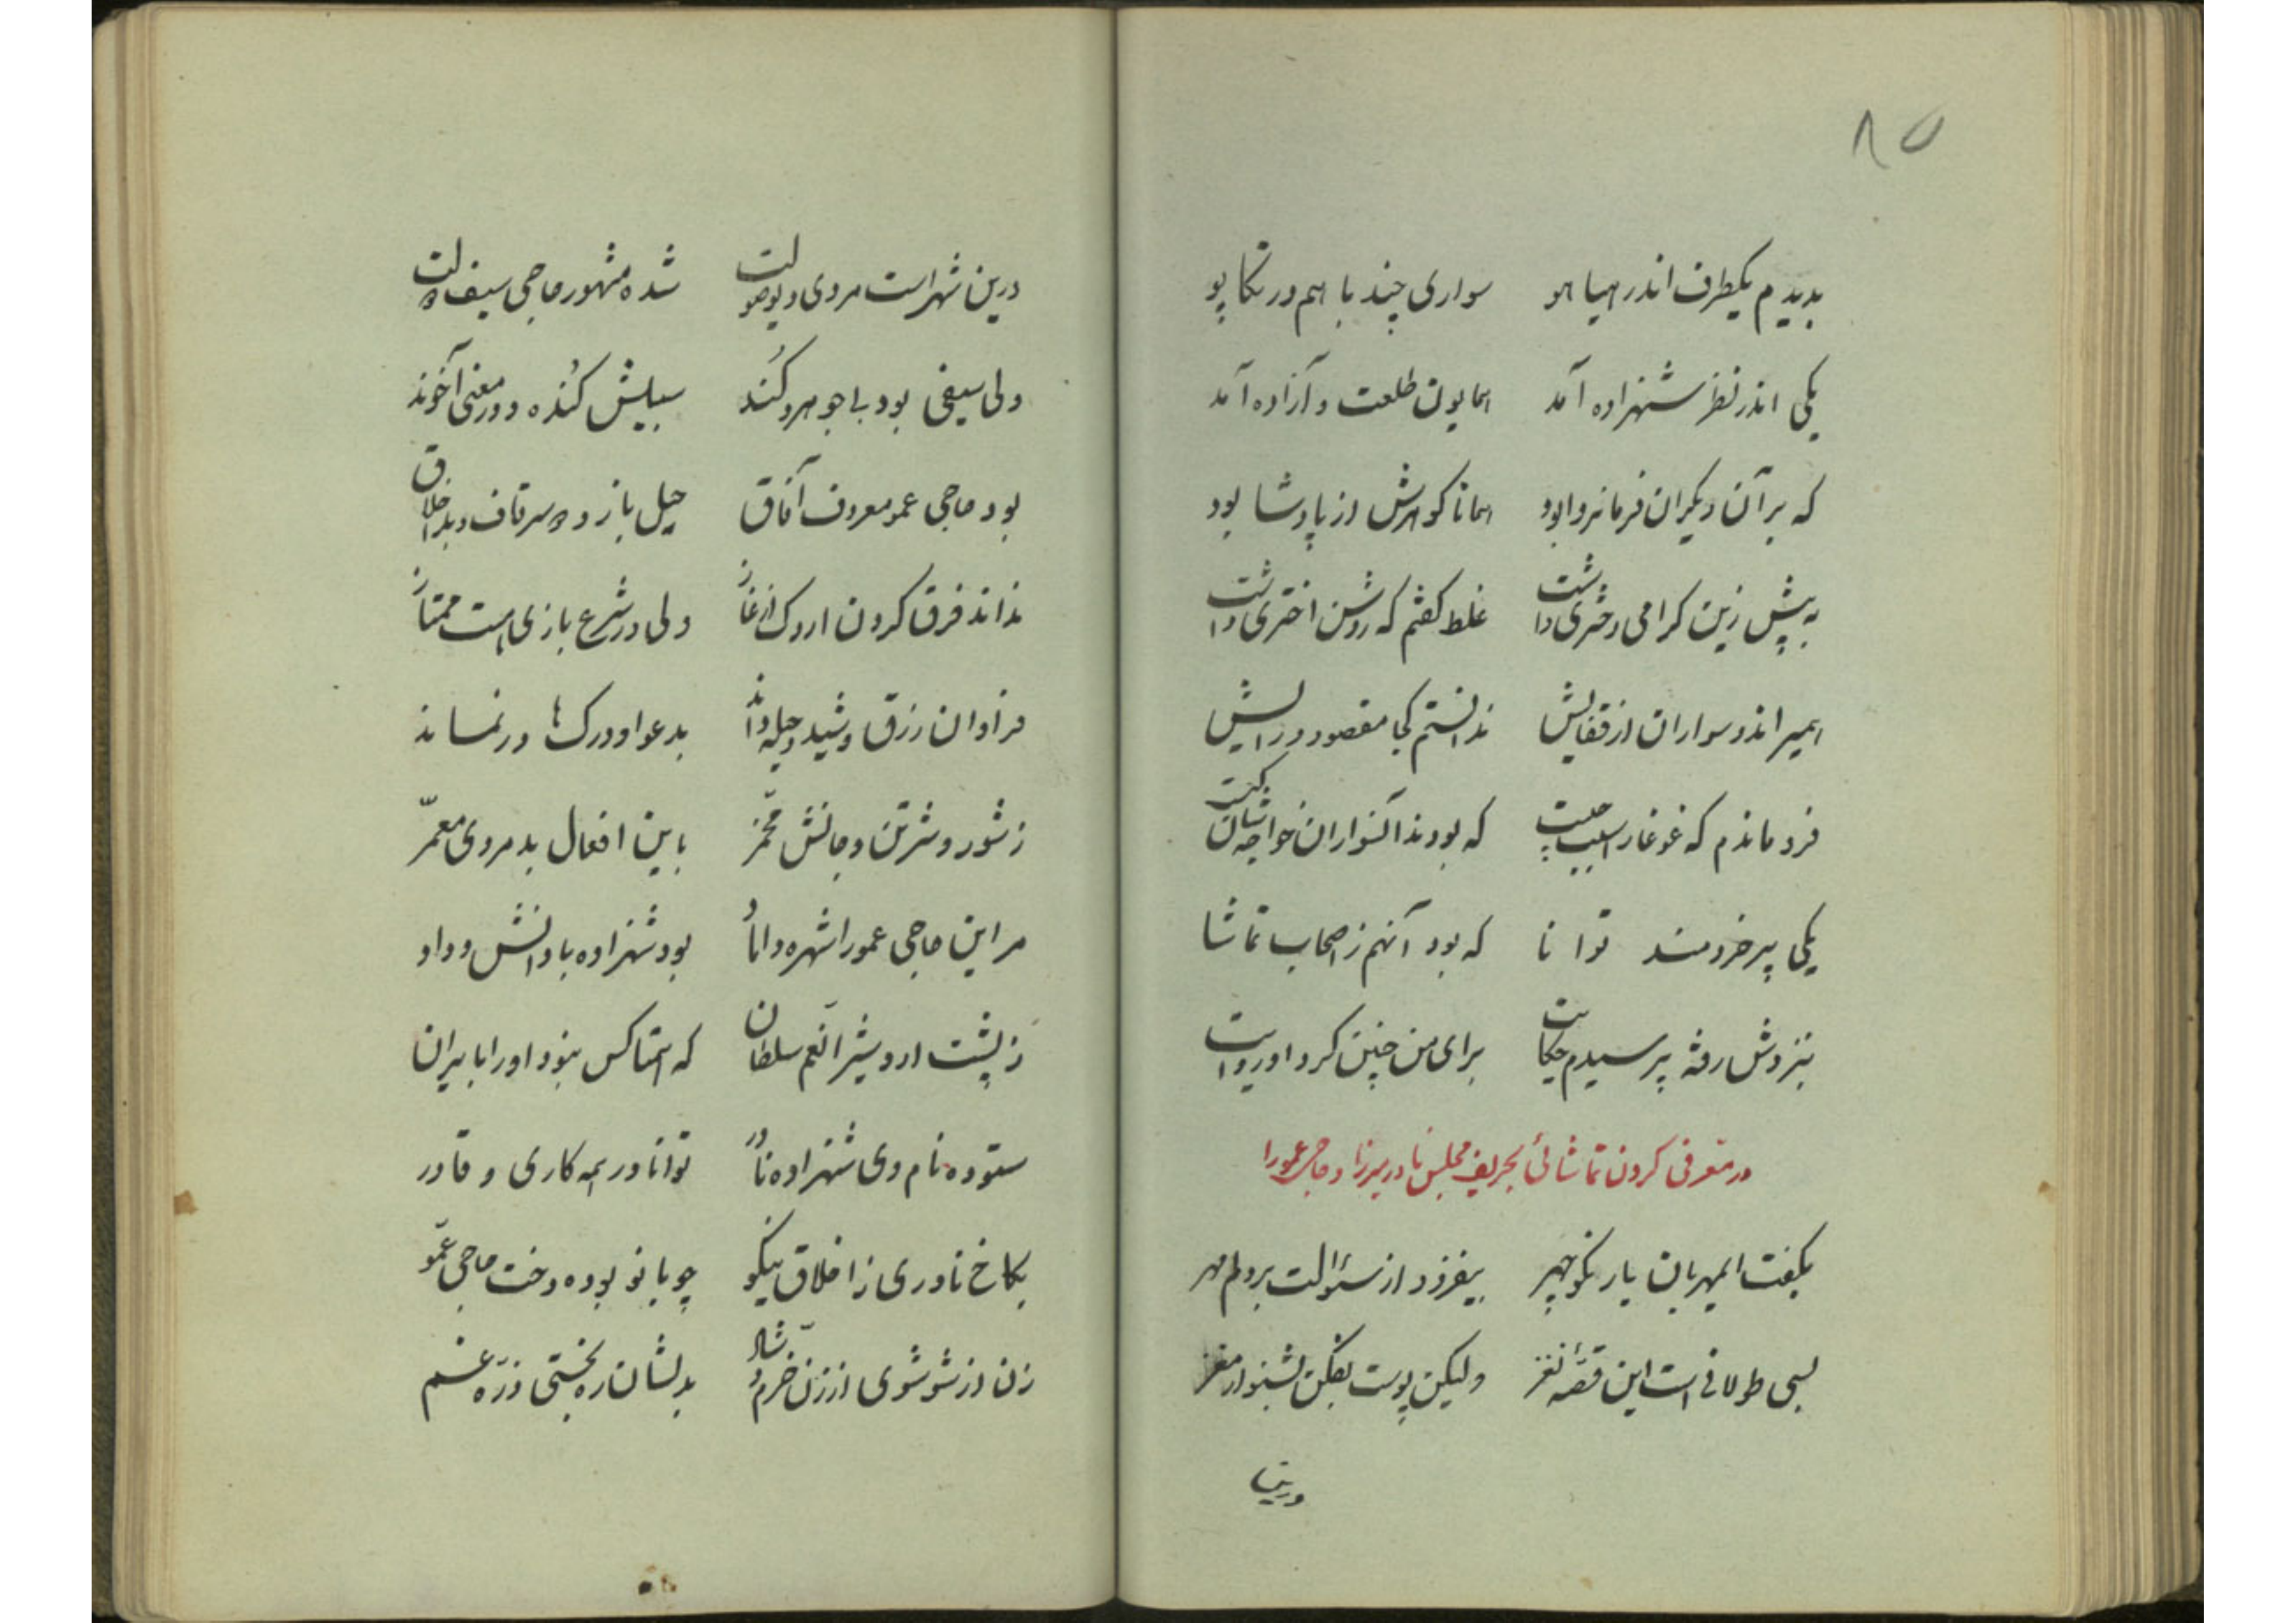 ۸۵
بدیدم یکطرف اندر هیاهو سواری چند با هم در تکاپو
یکی اندر نظر شهزاده آمد همایون طلعت و آزاده آمد
که بر آن دیگران فرمانروا بود همانا گوهرش از پادشا بود
به پیش زین گرامی دختری داشت غلط گفتم که روشن اختری داشت
همیراندو سواران از قفایش ندانستم کجا مقصود و رایش
فرو ماندم که غوغا را سبب چیست که بودند آنسواران خواجه شان کیست
یکی پیر خردمند توانا که بود آنهم ز اصحاب تماشا
بنزدش رفته پرسیدم حکایت برای من چنین کرد او روایت
در معرفی کردن تماشائی بحریف مجلس نادر میرزا و حاجی عمورا
بگفت ایمهربان یار نکو چهر بیفزود از سئوالت بر دلم مهر
بسی طولانی است این قصهٔ نغز ولیکن پوست بفکن بشنو از مغز
درین شهر است مردی دیو صولت شده مشهور حاجی سیف دولت
ولی سیفی بود با جوهر و کُند سبیلش کُنده و در معنی آخوند
بود حاجی عمو معروف آفاق حیل باز و و بد اخلاق
نداند فرق کردن اردک از غاز ولی در شرع بازی هست ممتاز
فراوان رزق و شید و حیله داند بدعوا و درک ها در نماند
ز شور و شر تن و جانش مخمّر باین افعال بد مردی معمّر
مر این حاجی عمو را شهره داماد بود شهزاده با دانش و داد
ز پشت اردشیر آنعم سلطان که همتا کس نبود او را بایران
ستوده نام وی شهزاده نادر توانا در همه کاری و قادر
بکاخ نادری ز اخلاق نیکو چو بانو بوده دخت حاجی عمّو
زن از شو شوی از زن خرم و شاد بدلشان ره نجستی ذرّه غم
درینـ